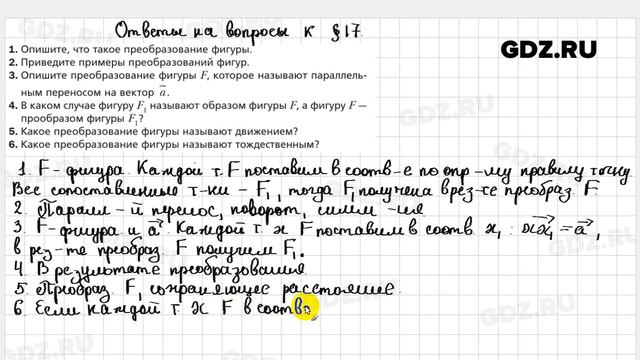 Ответы на вопросы к §17
GDZ.RU
1. Опишите, что такое преобразование фигуры.
2. Приведите примеры преобразований фигур.
3. Опишите преобразование фигуры F, которое называют параллель-
ным переносом на вектор a⃗.
4. В каком случае фигуру F₁ называют образом фигуры F, а фигуру F —
прообразом фигуры F₁?
5. Какое преобразование фигуры называют движением?
6. Какое преобразование фигуры называют тождественным?
1. F - фигура. Каждой т. F поставим в соотв-е по опр-му правилу точку.
Все сопоставленные т-ки - F₁, тогда F₁ получена в рез-те преобраз. F
2. Паралл-й перенос, поворот, симм-ия
3. F-фигура и a⃗. Каждой т. X F поставим в соотв. X₁ : XX₁ = a⃗,
в рез-те преобраз. F получим F₁.
4. В результате преобразования
5. Преобраз. F, сохраняющее расстояние.
6. Если каждой т. X F в соотв